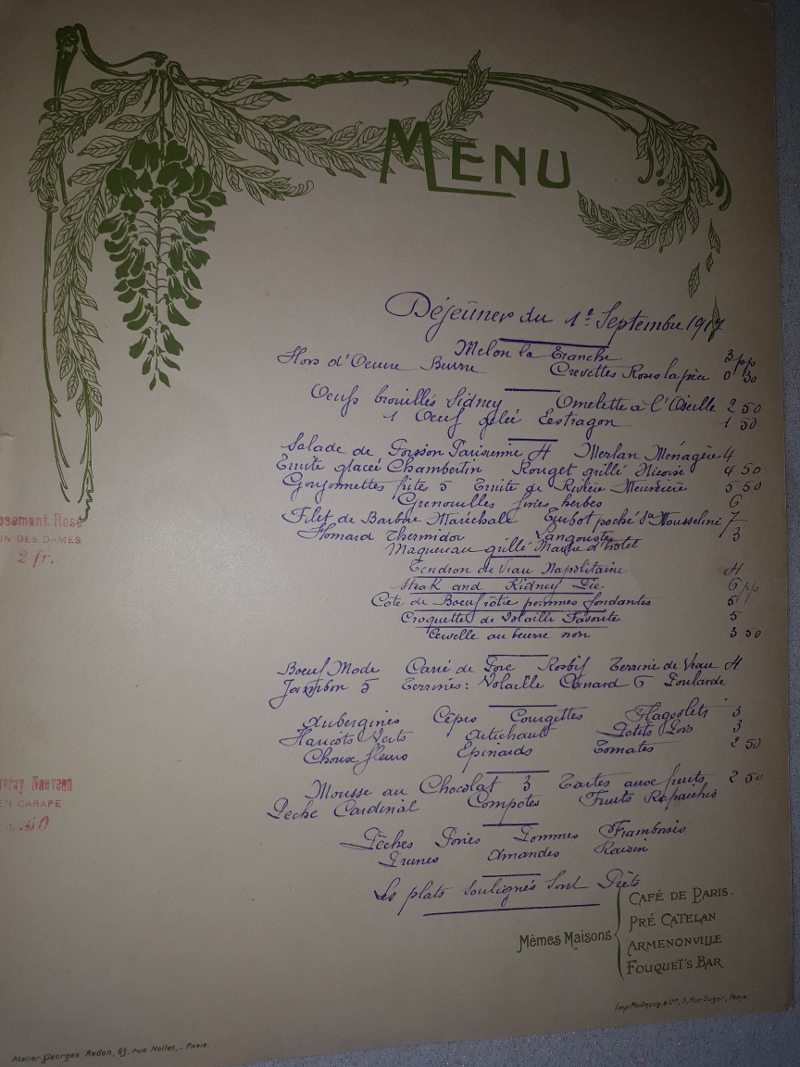 MENU
Déjeûner du 1er Septembre 1917
Melon la Tranche 3 pp
Hors d'Oeuvre Beurre Crevettes Roses la pièce 0 30
Oeufs brouillés Sidney Omelette à l'Oseille 2 50
1 Oeuf gelée Estragon 1 50
Salade de Poisson Parisienne 4 Merlan Ménagère 4
Truite glacée Chambertin Rouget grillé Niçoise 4 50
Goujonnettes frites 5 Truite de Rivière Meunière 5 50
Grenouilles fines herbes 6
Filet de Barbue Maréchale Turbot poché Sce Mousseline 7
Homard Thermidor Langouste 3
Maquereau grillé Maitre d'hotel
Tendron de Veau Napolitaine 4
Steak and Kidney Pie 6 pp
Côte de Boeuf rôtie pommes fondantes 5
Croquette de Volaille Favorite 5
Cervelle au beurre noir 3 50
Boeuf Mode Carré de Porc Rosbif Terrine de Veau 4
Jambon 5 Terrines: Volaille Canard 6 Poularde
Aubergines Cèpes Courgettes Flageolets 3
Haricots Verts Artichaut Petits Pois 3
Choux fleurs Epinards Tomates 2 50
Mousse au Chocolat 3 Tartes aux fruits 2 50
Pêche Cardinal Compotes Fruits Rafraichis
Pêches Poires Pommes Framboises
Prunes Amandes Raisin
Les plats soulignés sont Prêts
Mêmes Maisons
CAFÉ DE PARIS.
PRÉ CATELAN
ARMENONVILLE
FOUQUET'S BAR
sement Rosé
IN DES DAMES
2 fr.
EN CARAFE
Atelier Georges Redon, 63, rue Nollet, - PARIS.